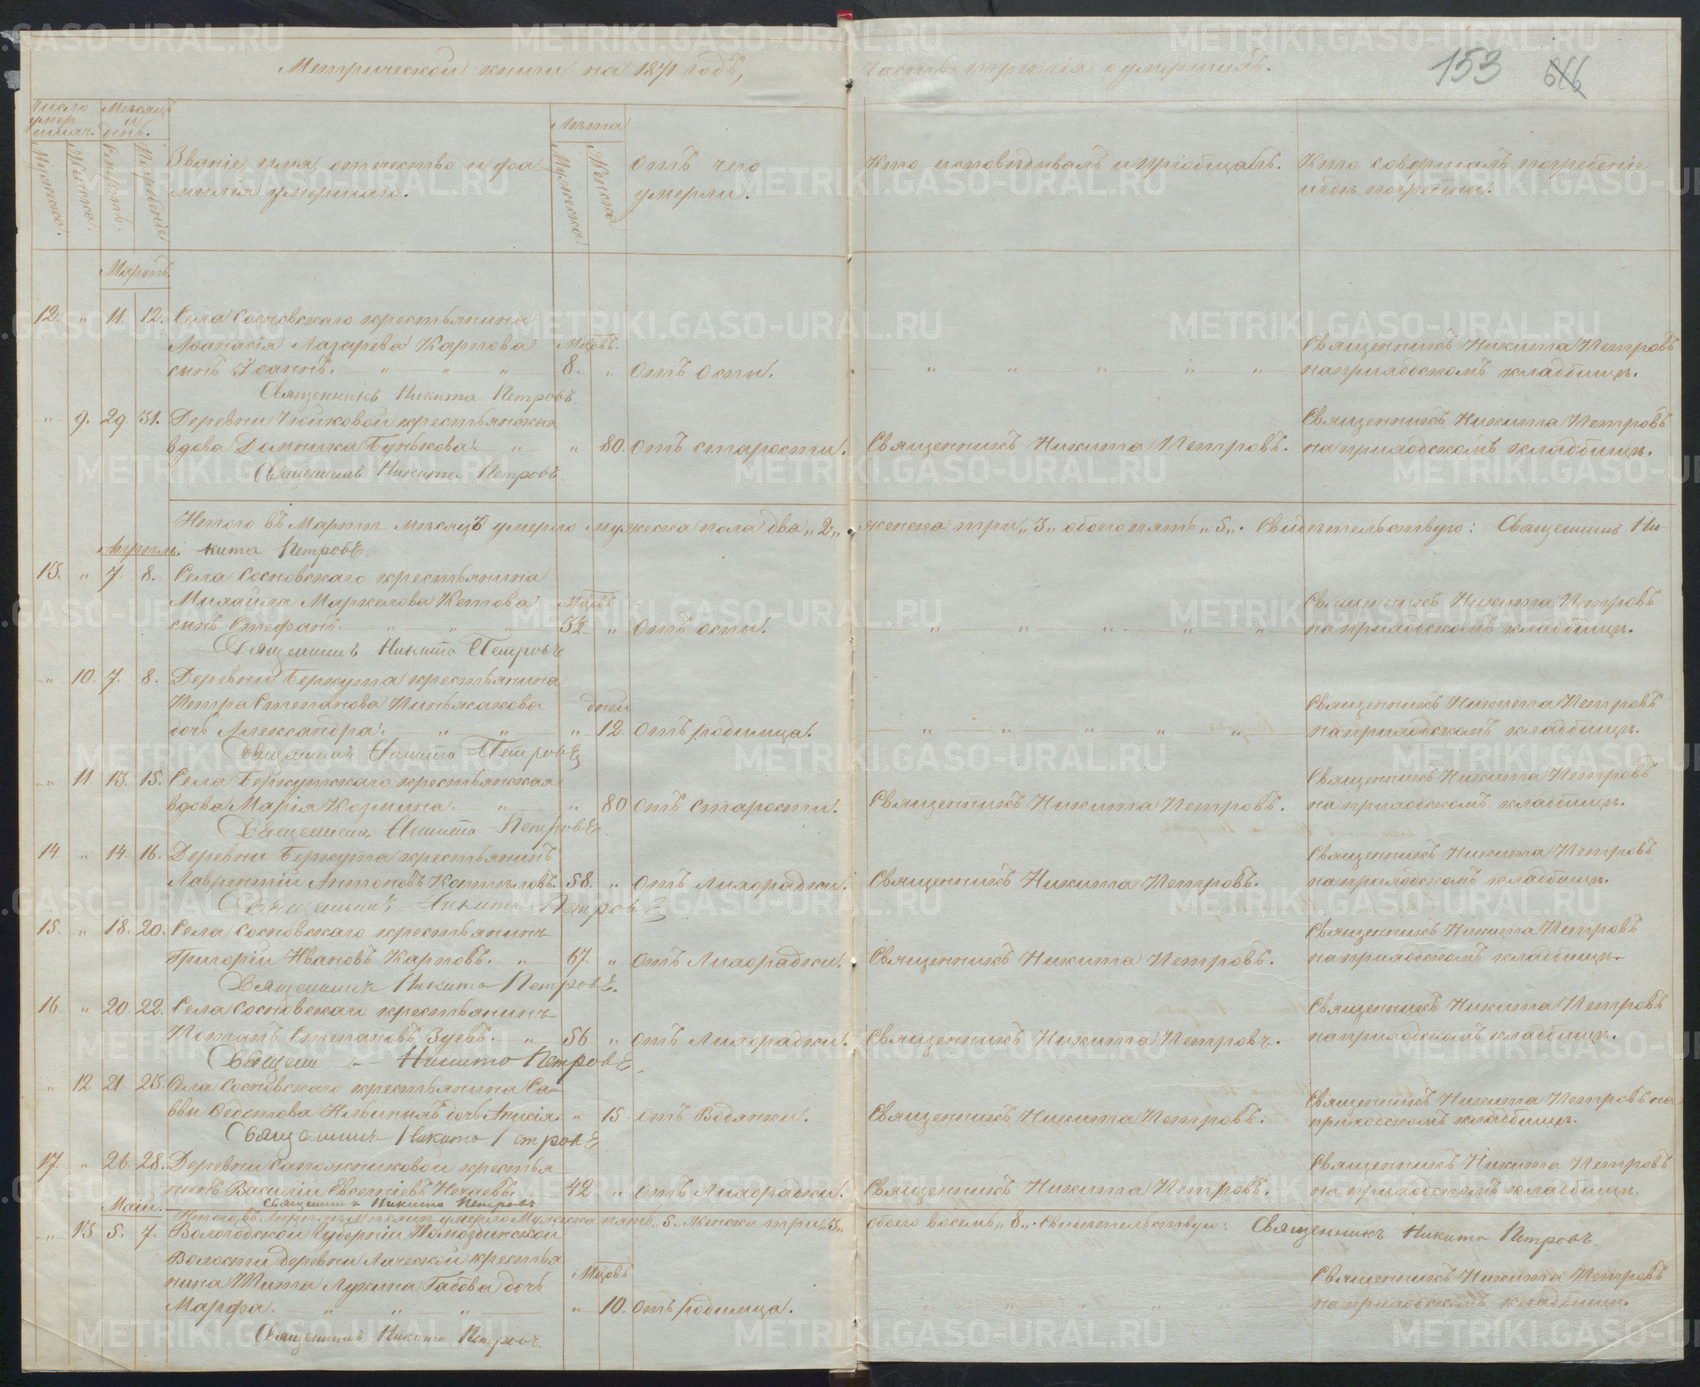 Метрической книги на 1871 годъ,
часть третія о умершихъ.
153
616
Числа умер шихъ.
Мѣсяцъ и день.
Мужеска.
Женска.
Смерть.
Погребеніе.
Званіе, имя, отечество и фа
милія умершаго.
Лѣта
Мужеска
Женска
Отъ чего
умерли.
Кто исповѣдывалъ и пріобщалъ.
Кто совершалъ погребеніе
и гдѣ погребены.
Мартъ.
12. " 11. 12. Села Сосновскаго крестьянина
Аѳанасія Лазарева Карпова Мѣсяцовъ.
сынъ Іоаннъ. " " " 8. " Отъ оспы. " " " " "
Священникъ Никита Петровъ
на приходскомъ кладбищѣ.
Священникъ Никита Петровъ
" 9. 29. 31. Деревни крестьянская
вдова Домника Бунькова " " 80. Отъ старости. Священникъ Никита Петровъ.
Священникъ Никита Петровъ
на приходскомъ кладбищѣ.
Священникъ Никита Петровъ.
Итого въ Мартѣ мѣсяцѣ умерло мужеска пола два „2„ женска три „3„ обоего пять „5„. Свидѣтельствую: Священникъ Ни-
кита Петровъ.
Апрѣль.
13. " 7. 8. Села Сосновскаго крестьянина
Михаила Маркелова Кетова Мѣсяцовъ
сынъ Стефанъ. " " " " Отъ оспы. " " " " "
Священникъ Никита Петровъ
на приходскомъ кладбищѣ.
Священникъ Никита Петровъ
" 10. 7. 8. Деревни Беркута крестьянина
Петра Степанова дней
дочь Александра. " " " 12. Отъ родимца. " " " " "
Священникъ Никита Петровъ
на приходскомъ кладбищѣ.
Священникъ Никита Петровъ
" 11. 13. 15. Села Беркутскаго крестьянская
вдова Марія Козмина. " " 80 Отъ старости. Священникъ Никита Петровъ.
Священникъ Никита Петровъ
на приходскомъ кладбищѣ.
Священникъ Никита Петровъ
14. " 14. 16. Деревни Беркута крестьянинъ
Лаврентій Антоновъ 58. " Отъ Лихорадки. Священникъ Никита Петровъ.
Священникъ Никита Петровъ
на приходскомъ кладбищѣ.
Священникъ Никита Петровъ
15. " 18. 20. Села Сосновскаго крестьянинъ
Григорій Ивановъ Карповъ. " 67. " Отъ Лихорадки. Священникъ Никита Петровъ.
Священникъ Никита Петровъ
на приходскомъ кладбищѣ.
Священникъ Никита Петровъ.
16 " 20. 22. Села Сосновскаго крестьянинъ
Потапъ Степановъ Зуевъ. " 56 " Отъ Лихорадки. Священникъ Никита Петровъ.
Священникъ Никита Петровъ
на приходскомъ кладбищѣ.
Священ ъ Никита Петровъ
" 12 21. 23. Села Сосновскаго крестьянина Са-
ввы Ѳедотова дочь Анисія. " 15. Отъ Водянки. Священникъ Никита Петровъ.
Священникъ Никита Петровъ на
приходскомъ кладбищѣ.
Священникъ Никита Петровъ
17. " 26. 28. Деревни Сапожниковой крестья
нинъ Василій Евсегніевъ Нечаевъ. 42 " Отъ Лихорадки. Священникъ Никита Петровъ.
Священникъ Никита Петровъ
на приходскомъ кладбищѣ.
Священникъ Никита Петровъ
Май.
Итого въ Апрѣлѣ мѣсяцѣ умерло Мужеска пять „5„ женска три „3„ обоего восемь „8„. Свидѣтельствую: Священникъ Никита Петровъ
" 13 5. 7. Вологодской Губерніи
Волости деревни крестья
нина Тита Лукина Габова дочь Мѣсяцовъ
Марѳа. " " " " 10. Отъ родимца. " " " " "
Священникъ Никита Петровъ
на приходскомъ кладбищѣ.
Священникъ Никита Петровъ.
METRIKI.GASO-URAL.RU